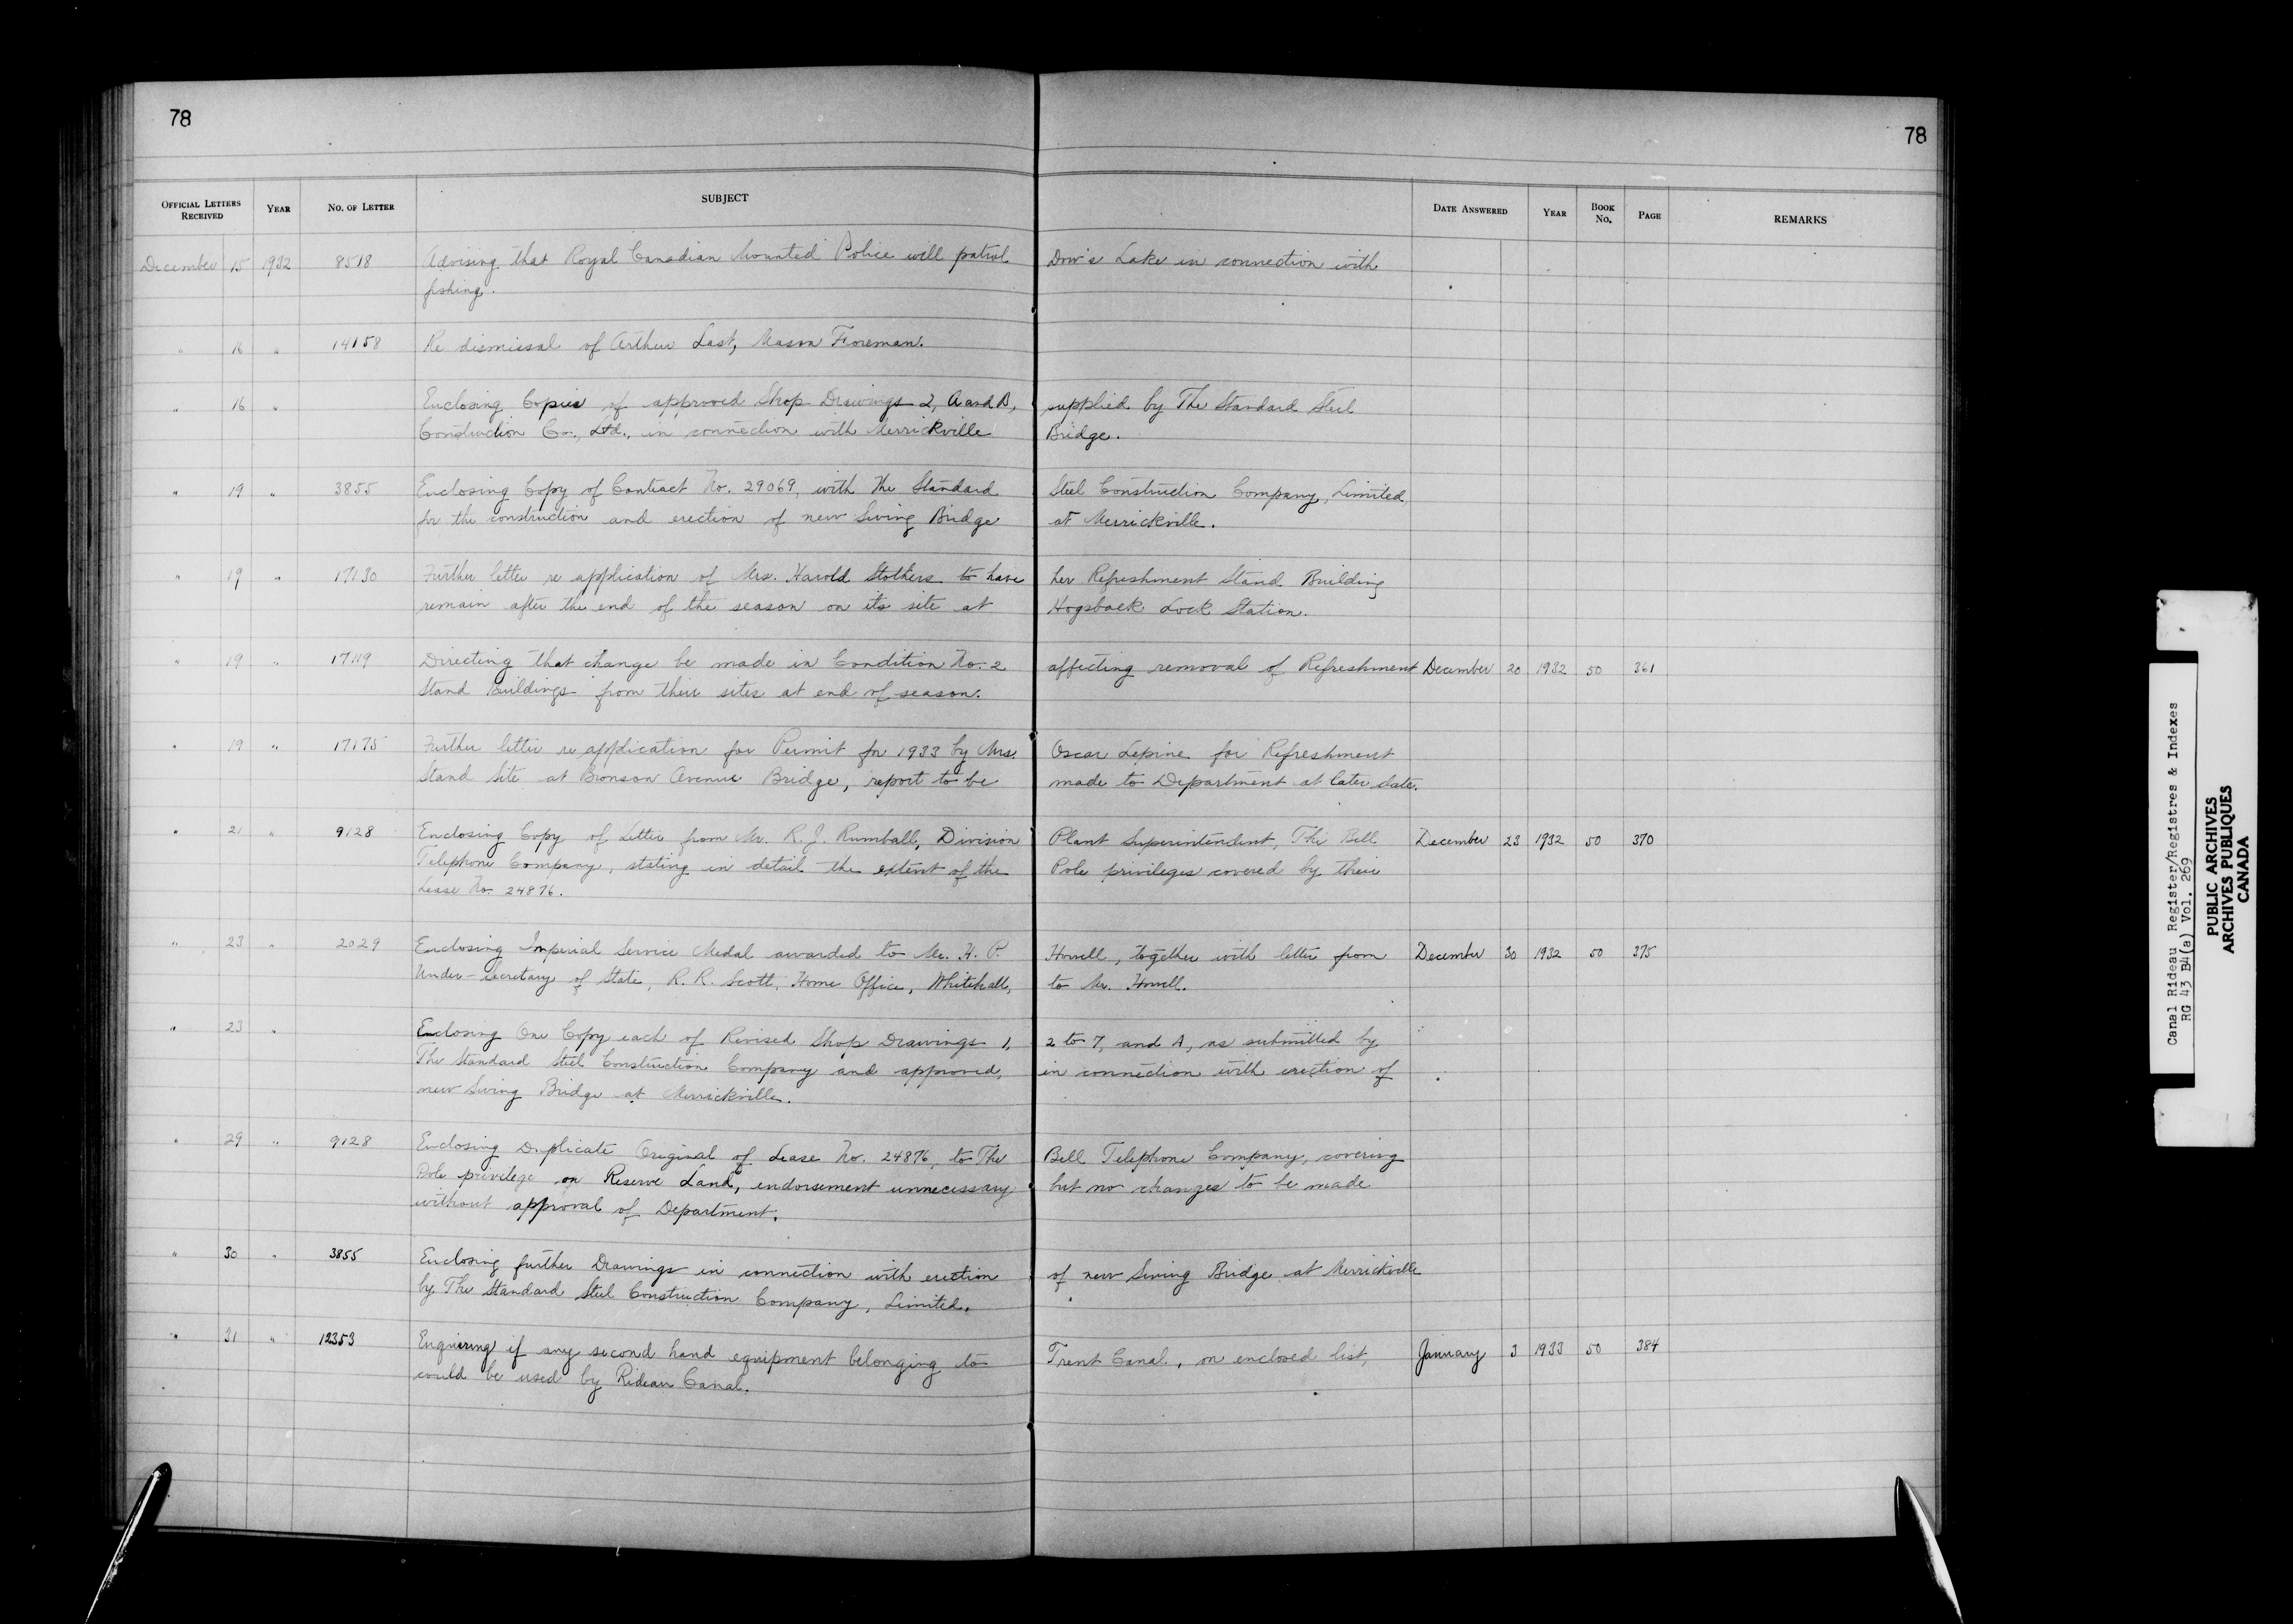 78
78
OFFICIAL LETTERS RECEIVED YEAR NO. OF LETTER SUBJECT DATE ANSWERED YEAR BOOK NO. PAGE REMARKS
December 15 1932 8518 Advising that Royal Canadian Mounted Police will patrol Dow's Lake in connection with
fishing.
" 16 " 14158 Re dismissal of Arthur Last, Mason Foreman.
" 16 " Enclosing Copies of approved Shop Drawings 2, A and B, supplied by The Standard Steel
Construction Co., Ltd., in connection with Merrickville Bridge.
" 19 " 3855 Enclosing Copy of Contract No. 29069, with The Standard Steel Construction Company, Limited,
for the construction and erection of new Swing Bridge at Merrickville.
" 19 " 17130 Further letter re application of Mrs. Harold Stothers to have her Refreshment Stand Building
remain after the end of the season on its site at Hogsback Lock Station.
" 19 " 17119 Directing that change be made in Condition No. 2 affecting removal of Refreshment December 20 1932 50 361
Stand Buildings from their sites at end of season.
" 19 " 17175 Further letter re application for Permit for 1933 by Mrs. Oscar Lepine for Refreshment
Stand Site at Bronson Avenue Bridge, report to be made to Department at later date.
" 21 " 9128 Enclosing Copy of Letter from Mr. R. J. Rumball, Division Plant Superintendent, The Bell December 23 1932 50 370
Telephone Company, stating in detail the extent of the Pole privileges covered by their
Lease No. 24876.
" 23 " 2029 Enclosing Imperial Service Medal awarded to Mr. H. P. Howell, together with letter from December 30 1932 50 375
Under-Secretary of State, R. R. Scott, Home Office, Whitehall, to Mr. Howell.
" 23 " Enclosing One Copy each of Revised Shop Drawings 1, 2 to 7, and A, as submitted by
The Standard Steel Construction Company and approved, in connection with erection of
new Swing Bridge at Merrickville.
" 29 " 9128 Enclosing Duplicate Original of Lease No. 24876, to The Bell Telephone Company, covering
Pole privilege on Reserve Land, endorsement unnecessary but no changes to be made
without approval of Department.
" 30 " 3855 Enclosing further Drawings in connection with erection of new Swing Bridge at Merrickville
by The Standard Steel Construction Company, Limited.
" 31 " 12353 Enquiring if any second hand equipment belonging to Trent Canal, on enclosed list, January 3 1933 50 384
could be used by Rideau Canal.
Canal Rideau Register/Registres & Indexes
RG 43 B4(a) Vol. 269
PUBLIC ARCHIVES
ARCHIVES PUBLIQUES
CANADA